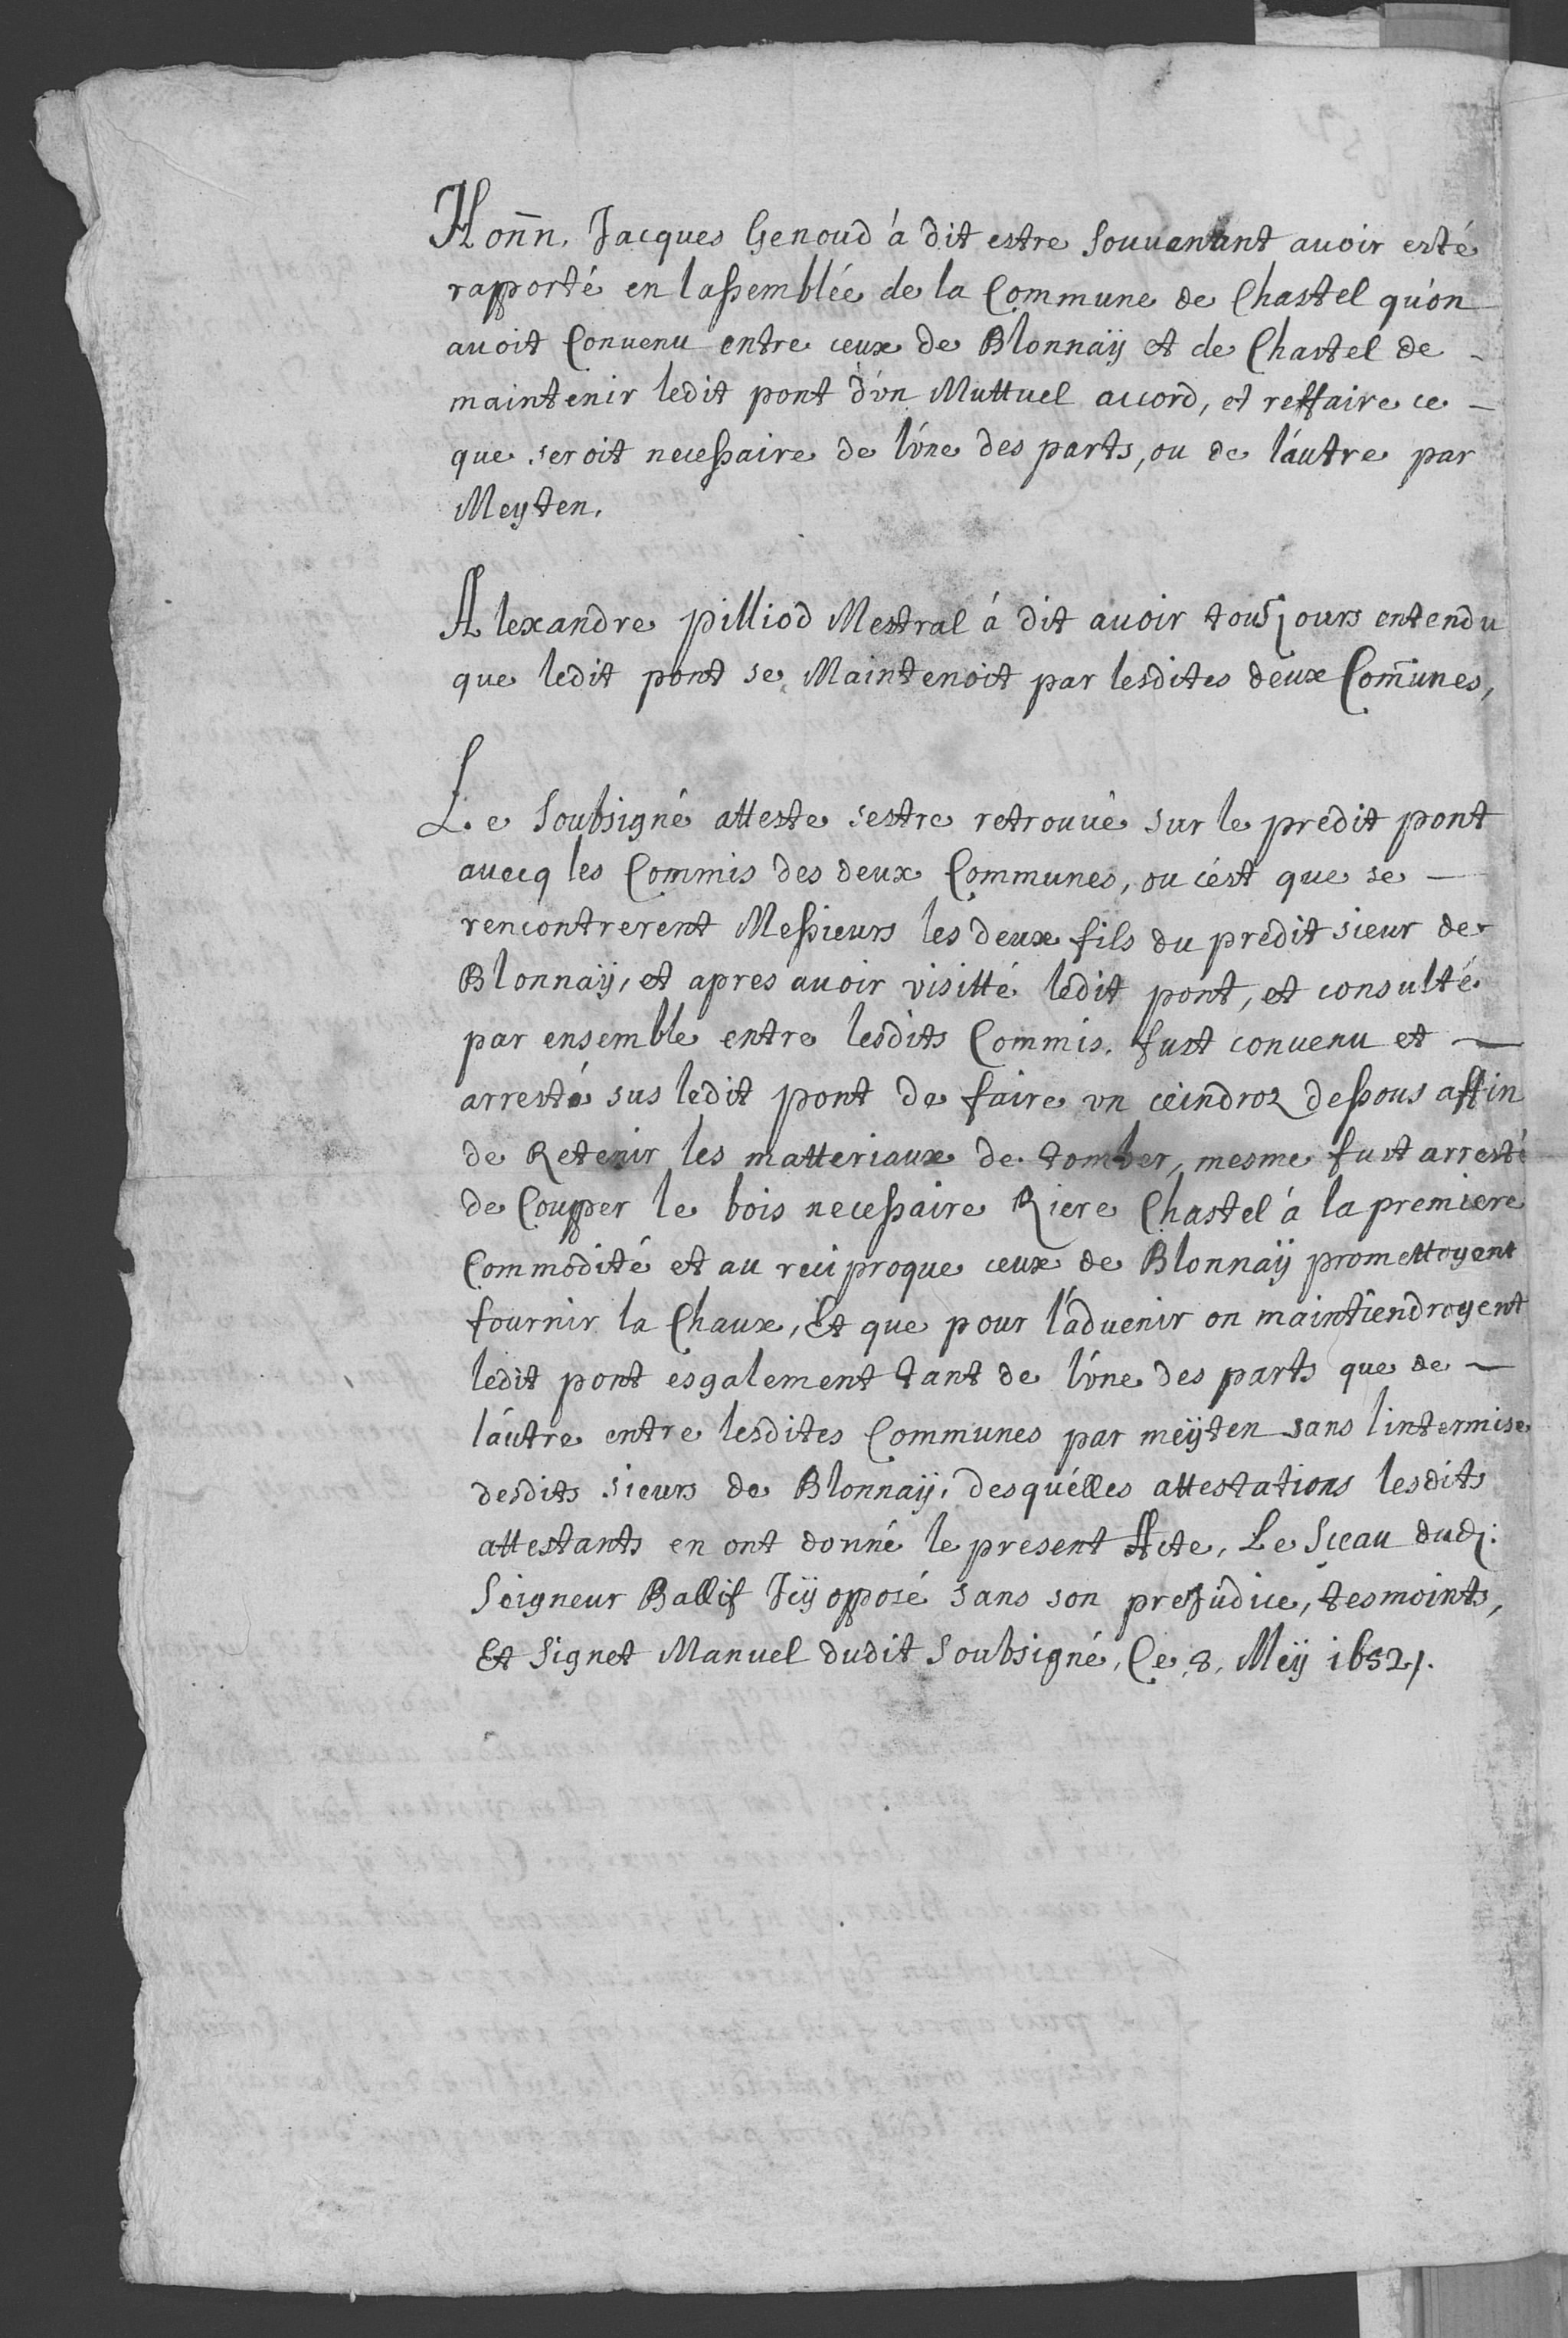 Hon̄n. Jacques Genoud á dit estre souuenant auoir esté
rapporté en lassemblée de la Commune de Chastel qu'on
auoit Conuenu entre ceux de Blonnaÿ et de Chastel de -
maintenir ledit pont d'vn Muttuel accord, et reffaire ce -
que seroit necessaire de l'vne des parts, ou de l'autre par
Meyten.
Alexandre pilliod Mestral á dit auoir tousjours entendu
que ledit pont se Maintenoit par lesdites deux Com̄unes,
Le Soubsigné atteste sestre retrouué sur le prédit pont
auecq les Commis des deux Communes, ou c'est que se -
rencontrerent Messieurs les deux fils du prédit sieur de
Blonnaÿ, et apres auoir visitté ledit pont, et consulté
par ensemble entre lesdits Commis. fust conuenu et -
arresté sus ledit pont de faire vn ceindroz dessous affin
de Retenir les matteriaux de tomber, mesme fust arresté
de Coupper le bois necessaire Riere Chastel á la premiere
Commodité et au reciproque ceux de Blonnaÿ promettoyent
fournir la Chaux, Et que pour l'aduenir on maintiendroyent
ledit pont esgalement tant de l'vne des parts que de -
l'autre entre lesdites Communes par meÿten sans lintermise
desdits sieurs de Blonnaÿ, desquélles attestations lesdits
attestants en ont donné le present Acte, Le Sceau dud:
Seigneur Ballif Icÿ opposé sans son prejudice, tesmoints,
Et Signet Manuel dudit Soubsigné, Ce 8. Meÿ 1652.